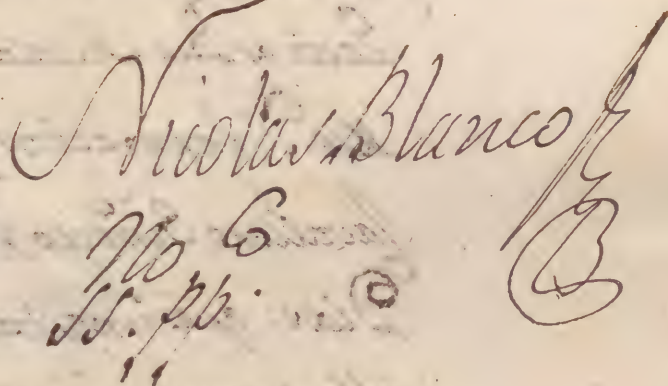 Nicolas Blanco
No Co
SS. pp.